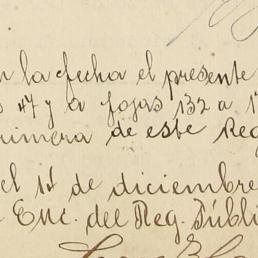 n la fecha el presente
s 47 y a fojas 132 a 1
rimera de este Reg
el 1º de diciembre
Enc. del Reg. Públi